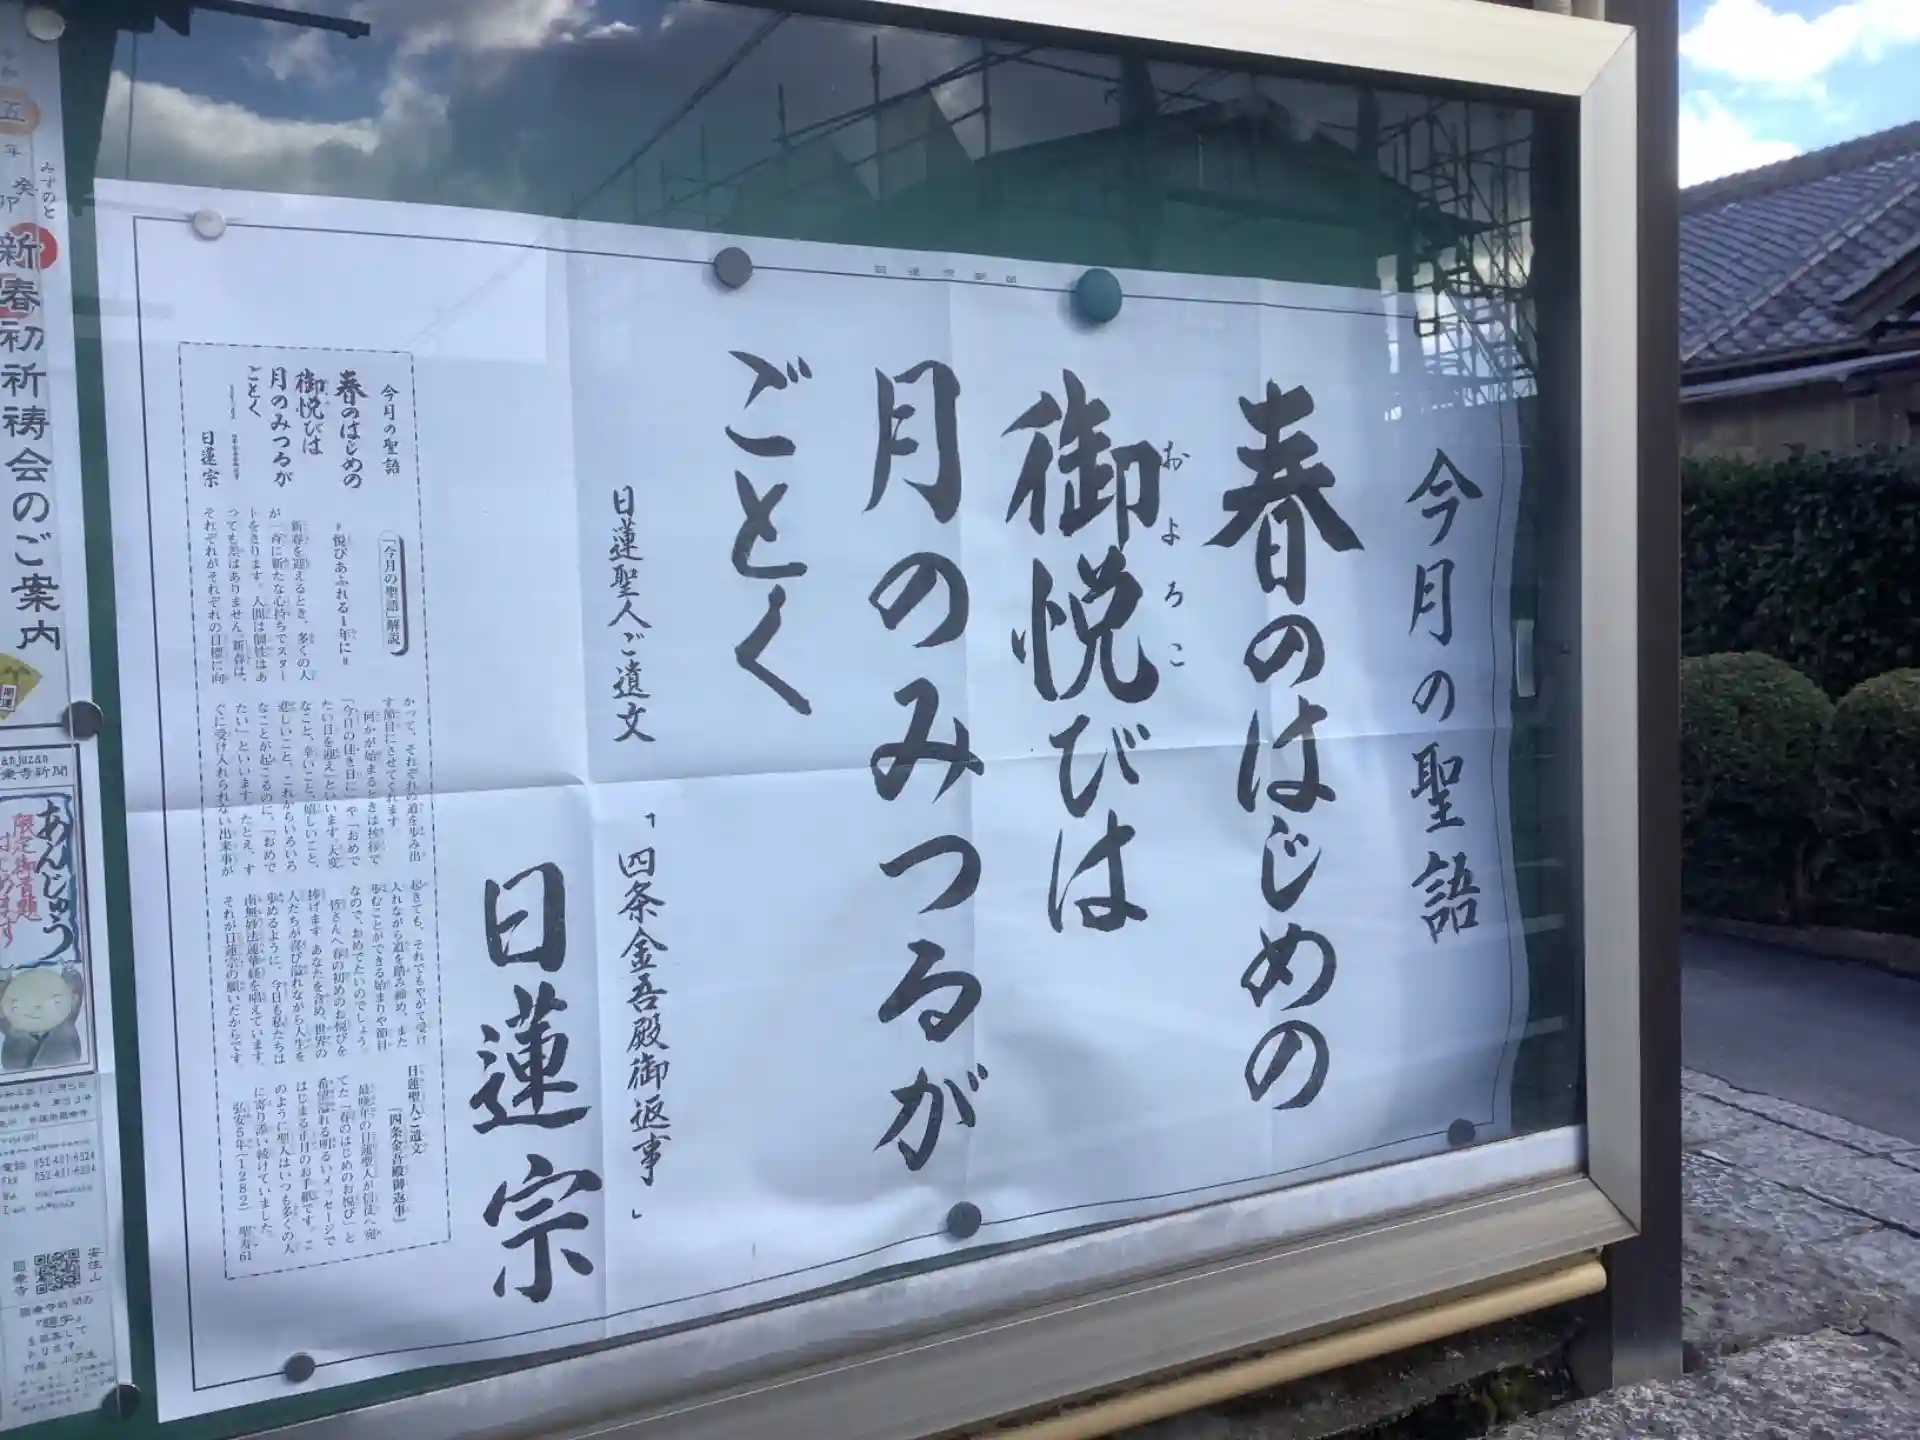 今月の聖語
春のはじめの
御悦びは
およろこ
月のみつるが
ごとく
日蓮聖人ご遺文
「四条金吾殿御返事」
日蓮宗
今月の聖語
春のはじめの
御悦びは
月のみつるが
ごとく
日蓮宗
「今月の聖語」解説
〃悦びあふれる1年に〃
新春を迎えるとき、多くの人
が一斉に新たな心持ちでスター
トをきります。人間は個性はあ
っても差はありません。新春は、
それぞれがそれぞれの目標に向
かって、それぞれの道を歩み出
す節目にさせてくれます
何かが始まるときは挨拶で
「今日の佳き日に」や「おめで
たい日を迎え」といいます。大変
なこと、辛いこと、嬉しいこと、
悲しいこと、これからいろいろ
なことが起こるのに、「おめで
たい」といいます。たとえ、す
ぐに受け入れられない出来事が
起きても、それでもやがて受け
入れながら道を踏み締め、また
歩むことができる始まりや節目
なので、おめでたいのでしょう。
皆さんへ春の初めのお悦びを
捧げます。あなたを含め、世界の
人たちが喜び溢れながら人生を
歩めるように、今日も私たちは
南無妙法蓮華経を唱えています。
それが日蓮宗の願いだからです。
日蓮聖人ご遺文
『四条金吾殿御返事』
最晩年の日蓮聖人が信徒へ宛
てた「春のはじめのお悦び」と
希望溢れる明るいメッセージで
はじまる正月のお手紙です。こ
のように聖人はいつも多くの人
に寄り添い続けていました。
弘安5年（1282）聖寿61
五年
癸卯
みずのと
新春初祈祷会のご案内
開運
anjuzan
乗寺新聞
あんじゅう
限定御首題
はじめます
電話 052-431-6324
安住山
圓乗寺